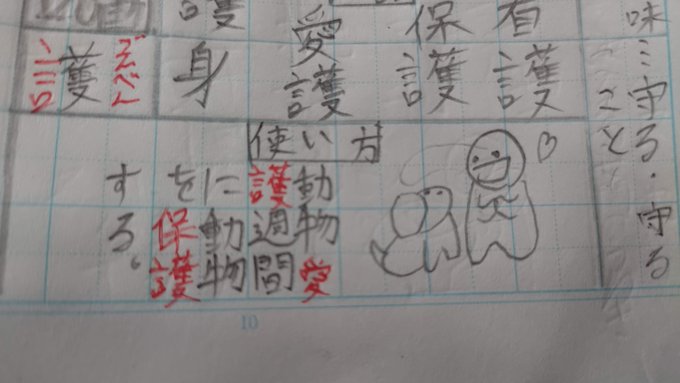 味…守る・守る
こと
護
保護
愛護
護身
ごんべん
護
言
使い方
動物愛
護週間
に動物
を保護
する。
10